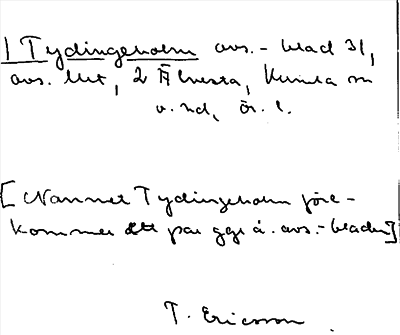 1 Tydingeholm avs.-blad 31,
avs. litt, 2 Älvesta, Kumla sn
o. hd, Ör. l.
[Namnet Tydingeholm före-
kommer ett par ggr å avs.-bladen]
T. Ericsson